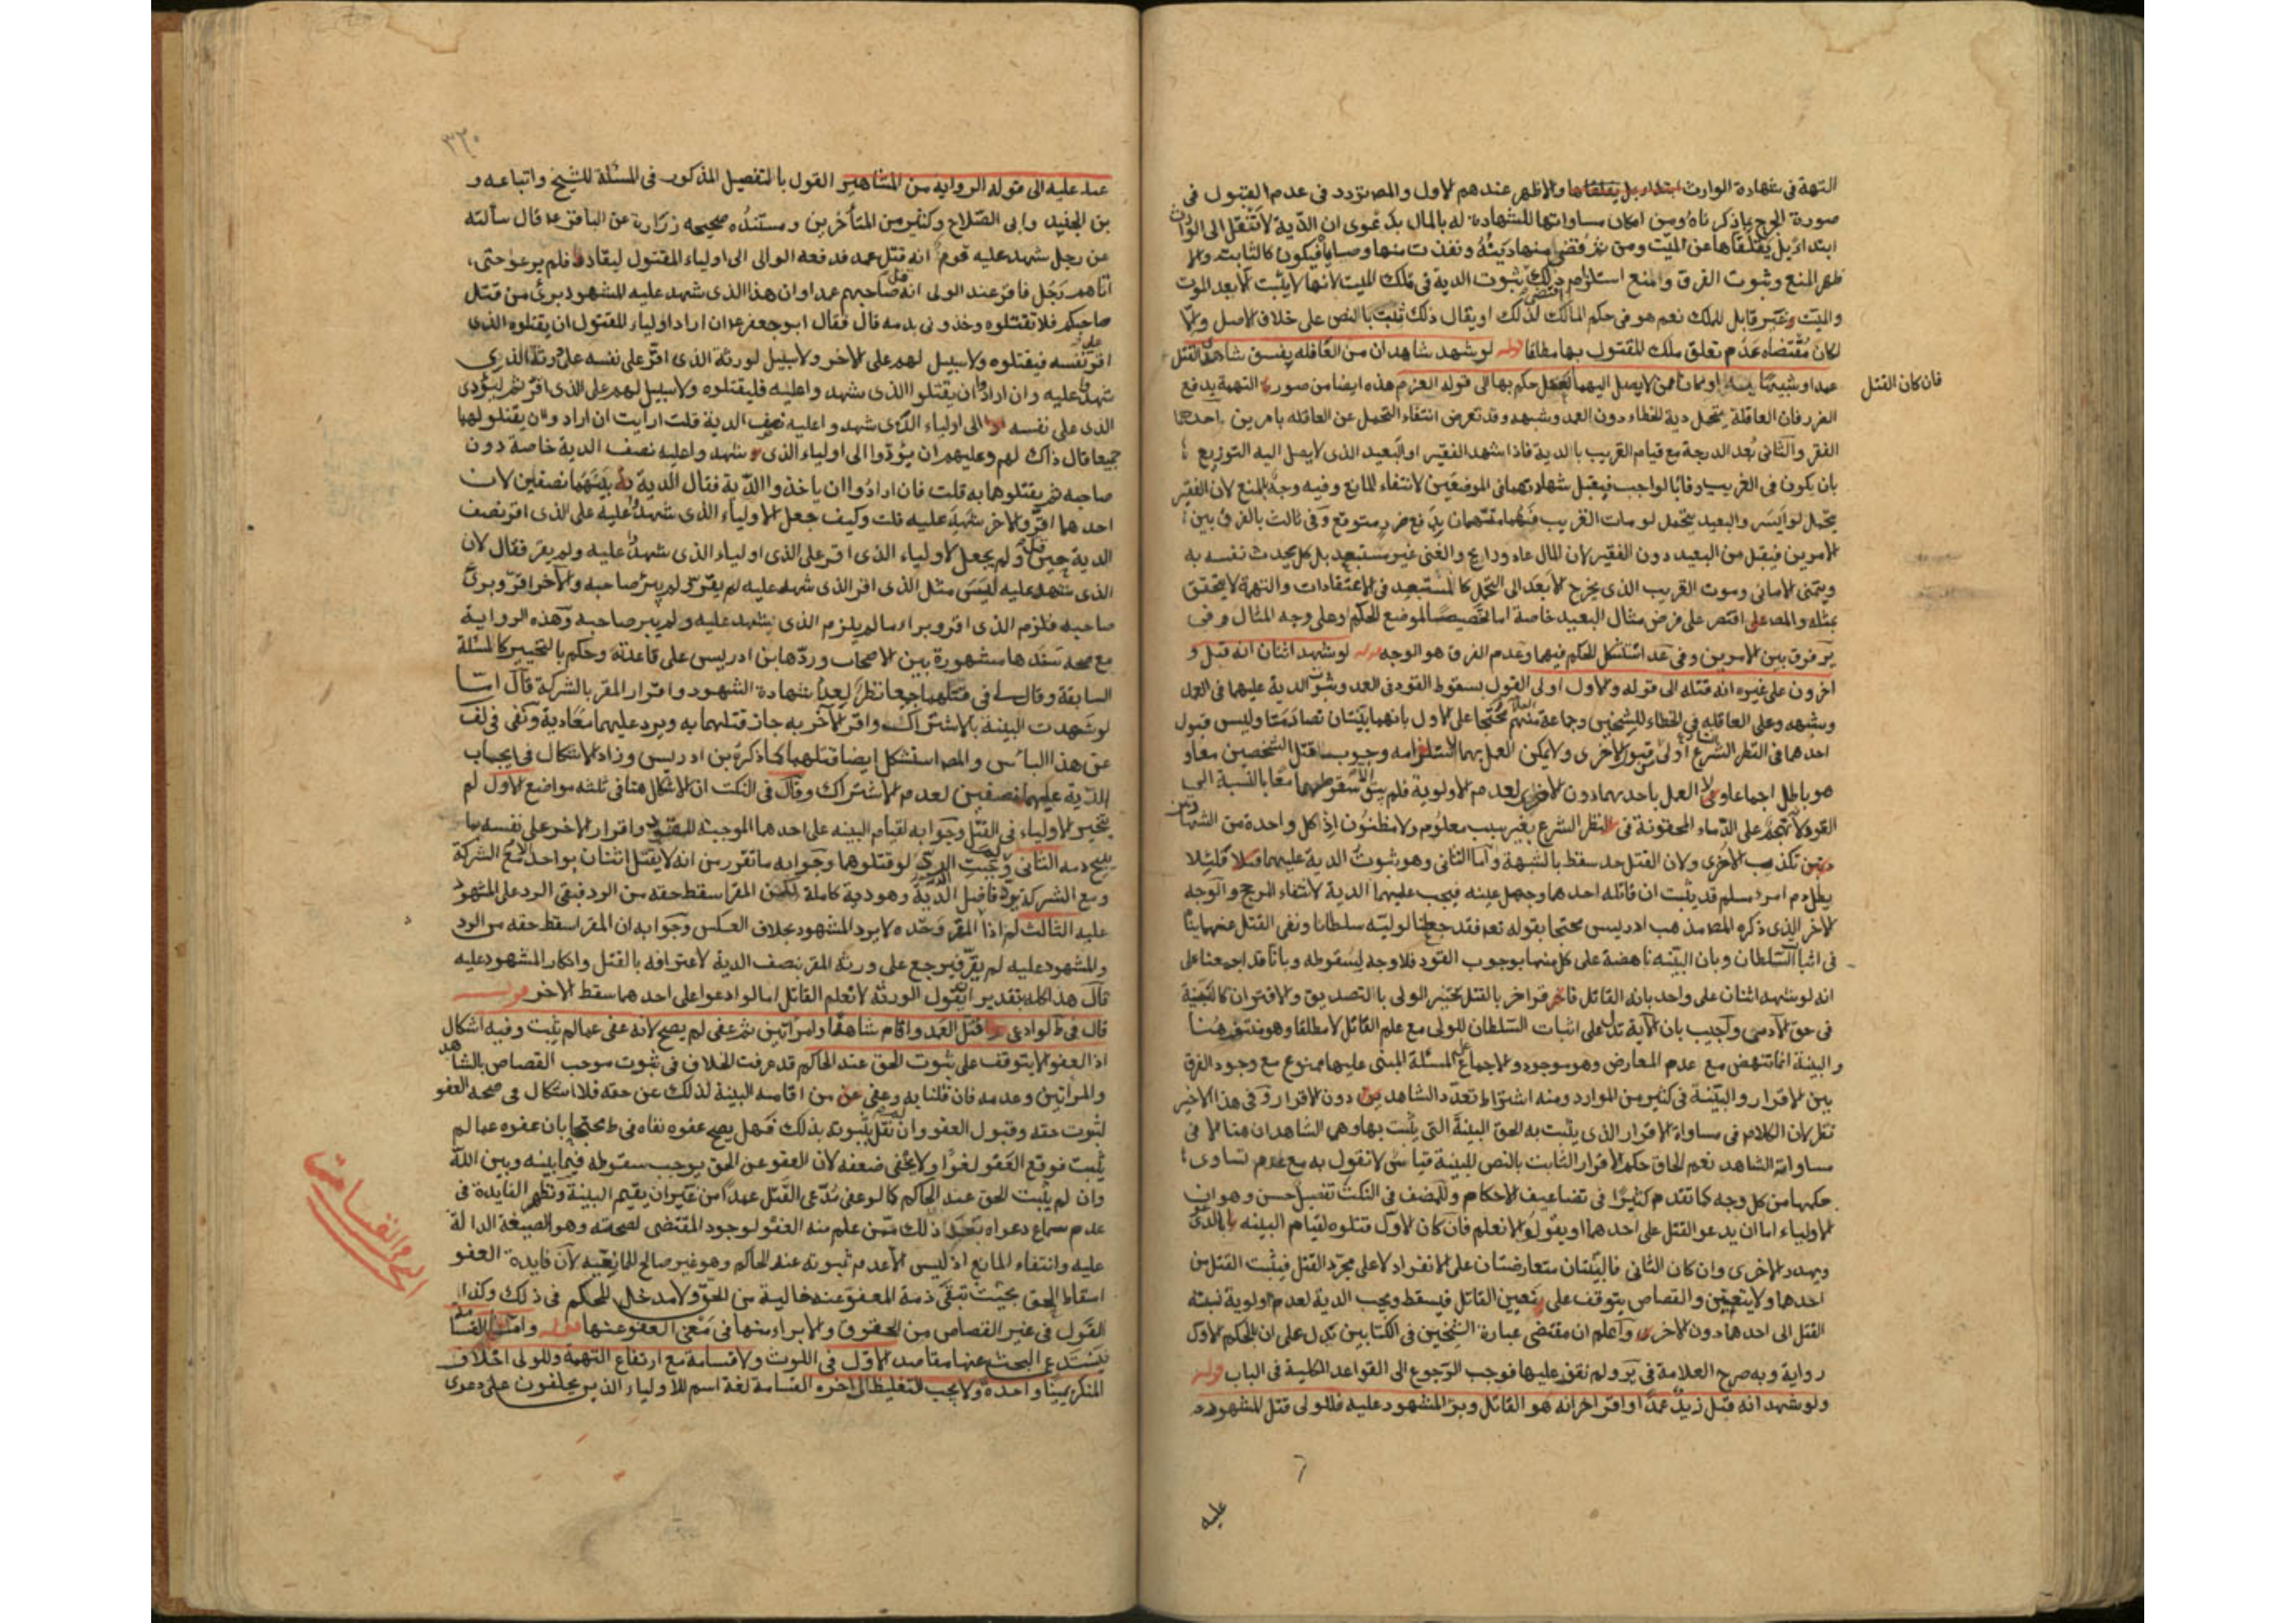 التهمة فى شهادة الوارث ابتداء بل يتلقاها والاظهر عندهم الاول والمصـ تردد فى عدم القبول فى
صورة الجرح بما ذكرناه ومن امكان مساواتها للشهادة له بالمال بدعوى ان الدية لا تنتقل الى الوارث
ابتداء بل يتلقاها عن الميت ومن ثم قضى منها ديته ونفذت منها وصاياه فيكون كالثابت والا
ظهر المنع وثبوت الفرق والمنع استلزام ذلك ثبوت الدية فى ملك الميت لانها لا يثبت الا بعد الموت
والميت غير قابل للملك نعم هو فى حكم المالك لذلك او يقال ذلك ثابت بالنص على خلاف الاصل
لكان مقتضاه عدم تعلق ملك المقتول بها مطلقا قوله لو شهد شاهدان من العاقلة بفسق شاهدى القتل
فان كان القتل
عمدا او شبيها به او كانا ممن لا يصل اليهما العقل حكم بها الى قوله الغرم هذه ايضا من صورة التهمة بدفع
الضرر فان العاقلة يتحمل دية الخطاء دون العمد وشبهه وقد تعرض انتفاء التحمل عن العاقلة بامرين احدهما
الفقر والثانى بعد الدرجة مع قيام القريب بالدية فاذا شهد الفقير او البعيد الذى لا يصل اليه التوزيع
بان يكون فى القريب وفاء بالواجب فيقبل شهادتهما فى الموضعين لانتفاء المانع وفيه وجه بالمنع لان الفقير
يتحمل لو ايسر والبعيد يتحمل لو مات القريب فهما متهمان بدفع ضرر متوقع وفى ثالث بالفرق بين
الامرين فيقبل من البعيد دون الفقير لان المال غاد ورائح والغنى غير مستبعد بل كل يحدث نفسه به
ويتمنى الامانى وموت القريب الذى يخرج الابعد الى التحمل كالمستبعد فى الاعتقادات والتهمة لا يتحقق
بمثله والمصـ اقتصر على فرض مثال البعيد خاصة اما تخصيصا لموضع الحكم او على وجه المثال وفى
ير فرق بين الامرين وفى عد استشكل الحكم فيهما وعدم الفرق هو الوجه قوله لو شهد اثنان انه قتل و
اخرون على غيره انه قتله الى قوله والاول اولى القول بسقوط القود فى العمد وثبوت الدية عليهما فى العمد
وشبهه وعلى العاقلة فى الخطاء للشيخين وجماعة منهم العلا محتجا على الاول بانهما بينتان تصادمتا وليس قبول
احدهما فى النظر الشرع اولى من قبول الاخرى ولا يمكن العمل بهما لاستلزامه وجوب قتل الشخصين معا و
هو باطل اجماعا ولا العمل باحدهما دون الاخرى لعدم الاولوية فلم يبق الا سقوطهما معا بالنسبة الى
القود لانه تهجم على الدماء المحقونة فى النظر الشرع بغير سبب معلوم ولا مظنون اذ كل واحدة من الشهادتين
تكذب الاخرى ولان القتل حد سقط بالشبهة واما الثانى وهو ثبوت الدية عليهما فلئلا
يطل دم امرء مسلم قد يثبت ان قاتله احدهما وجهل عينه فيجب عليهما الدية لانتفاء المرجح والوجه
الاخر الذى ذكره المصـ مذهب ابن ادريس محتجا بقوله تعـ فقد جعلنا لوليه سلطانا ونفى القتل عنهما ينافى
فى اثبات السلطان وبان البينة ناهضة على كل منهما بوجوب القود فلا وجه لسقوطه وبانا قد اجمعنا على
انه لو شهد اثنان على واحد بانه القاتل فاقر اخر بالقتل يتخير الولى بالتصديق والاقرار كالبينة
فى حق الآدمى واجيب بان الآية تدل على اثبات السلطان للولى مع علم القاتل لا مطلقا وهو منتف هنا
والبينة انما تنهض مع عدم المعارض وهو موجود والاجماع على المسئلة المبنى عليهما ممنوع مع وجود الفرق
بين الاقرار والبينة فى كثير من الموارد ومنه اشتراط تعدد الشاهد دون الاقرار وفى هذا الاخير
نظر لان الكلام فى مساواة الاقرار الذى يثبت به الحق البينة التى يثبت بها وهى الشاهدان هنا لا فى
مساواة الشاهد نعم الحاق حكم الاقرار الثابت بالنص للبينة قياس لا نقول به مع عدم تساوى
حكمهما من كل وجه كما تقدم كثيرا فى تضاعيف الاحكام وللمصنف فى النكت تفصيل حسن وهو ان
الاولياء اما ان يدعو القتل على احدهما او يقولوا لا نعلم فان كان الاول قتلوه لقيام البينة بالدعوى
ويهدر الاخرى وان كان الثانى فالبينتان متعارضتان على الانفراد لا على مجرد القتل فيثبت القتل من
احدهما ولا يتعين والقصاص يتوقف على تعيين القاتل فيسقط ويجب الدية لعدم اولوية نسبة
القتل الى احدهما دون الاخرى واعلم ان مقتضى عبارة الشيخين فى الكتابين تدل على ان الحكم الاول
رواية وبه صرح العلامة فى ير ولم نقف عليها فوجب الرجوع الى القواعد الكلية فى الباب قوله
ولو شهد انه قتل زيدا عمدا واقر اخر انه هو القاتل وبرأ المشهود عليه فللولى قتل المشهود
عليه
٣٢٠
عليه الى قوله الرواية من المشاهير القول بالتفصيل المذكور فى المسئلة للشيخ واتباعه و
بن الجنيد وابى الصلاح وكثير من المتأخرين ومستنده صحيحه زرارة عن الباقر ع قال سألته
عن رجل شهد عليه قوم انه قتل عمدا فدفعه الوالى الى اولياء المقتول ليقاد فلم يرعوا حتى
اتاهم رجل فاقر عند الولى انه قتل صاحبهم عمدا وان هذا الذى شهد عليه المشهود برئ من قتل
صاحبكم فلا تقتلوه وخذونى بدمه قال فقال ابو جعفر ع ان اراد اولياء المقتول ان يقتلوه الذى
اقر على نفسه فيقتلوه ولا سبيل لهم على الاخر ولا سبيل لورثة الذى اقر على نفسه على ورثة الذى
شهد عليه وان ارادوا ان يقتلوا الذى شهدوا عليه فليقتلوه ولا سبيل لهم على الذى اقر ثم ليؤدى
الذى على نفسه الى اولياء الذى شهدوا عليه نصف الدية قلت ارايت ان ارادوا ان يقتلولهما
جميعا قال ذاك لهم وعليهم ان يؤدوا الى اولياء الذى شهدوا عليه نصف الدية خاصة دون
صاحبه ثم يقتلوهما به قلت فان ارادوا ان ياخذوا الدية فقال الدية بينهما نصفين لان
احدهما اقر والاخر شهد عليه قلت وكيف جعل لاولياء الذى شهدوا عليه على الذى اقر نصف
الدية حين قتل ولم يجعل لاولياء الذى اقر على الذى اولياء الذى شهدوا عليه ولم يقر فقال لان
الذى شهد عليه ليس مثل الذى اقر الذى شهد عليه لم يقر ولم يبرئ صاحبه والآخر اقر وبرئ
صاحبه فلزم الذى اقر وبراء ما لم يلزم الذى شهد عليه ولم يبر صاحبه وهذه الرواية
مع صحة سندها مشهورة بين الاصحاب وردها ابن ادريس على قاعدته وحكم بالتخيير كالمسئلة
السابقة وقال فى قتلهما جميعا نظر لعدم شهادة الشهود واقرار المقر بالشركة قال اما
لو شهدت البينة بالاشتراك واقر الآخر به جاز قتلهما به ويرد عليهما معا دية ونفى فى لف
عن هذا الباس والمصـ استشكل ايضا قتلهما كما ذكره بن ادريس وزاد الاشكال فى ايجاب
الدية عليهما نصفين لعدم الاشتراك وقال فى النكت ان الاشكال هنا فى ثلثه مواضع الاول لم
يتخير الاولياء فى القتل وجوابه لقيام البينه على احدهما الموجبة للقود واقرار الاخر على نفسه بما
يبيح دمه الثانى وجبت الدية لو قتلوهما وجوابه ما تقرر من انه لا يقتل اثنان بواحد الا مع الشركة
ومع الشركة يرد فاضل الدية وهو دية كاملة لكن المقر اسقط حقه من الرد فبقى الرد على المشهود
عليه الثالث لم اذا المقر وحده لا يرد المشهود بخلاف العكس وجوابه ان المقر اسقط حقه من الرد
والمشهود عليه لم يقر فيرجع على ورثة المقر بنصف الدية لاعترافه بالقتل وانكار المشهود عليه
قال هذا كله بتقدير ان يقول الورثة لا نعلم القاتل اما لو ادعوا على احدهما سقط الاخر قوله
قال فى ط لو ادعى قتل العمد واقام شاهدا وامراتين ثم عفى لم يصح لانه عفى عما لم يثبت وفيه اشكال
اذ العفو لا يتوقف على ثبوت الحق عند الحاكم قد عرفت الخلاف فى ثبوت موجب القصاص بالشاهد
والمراتين وعدمه فان قلنا به وعفى من اقامه البينة لذلك عن حقه فلا اشكال فى صحه العفو
لثبوت حقه وقبول العفو وان لم نقل بثبوته بذلك فهل يصح عفوه نفاه فى ط محتجا بان عفوه عما لم
يثبت فوقع العفو لغوا ولا يخفى ضعفه لان العفو عن الحق يوجب سقوطه فيما بينه وبين الله
وان لم يثبت الحق عند الحاكم كما لو عفى مدعى القتل عمدا من غير ان يقيم البينة وتظهر الفايدة فى
عدم سماع دعواه بعد ذلك ممن علم منه العفو لوجود المقتضى لصحته وهو الصيغة الدالة
عليه وانتفاء المانع اذ ليس الا عدم ثبوته عند الحاكم وهو غير صالح للمانعية لان فايدة العفو
اسقاط الحق بحيث تبقى ذمة المعفو عنه خالية من الحق ولا مدخل للحكم فى ذلك وكذا
القول فى غير القصاص من الحقوق والابراء منها فى معنى العفو عنها قوله واما القسامة
فيستدعى البحث عنها مقاصد الاول فى اللوث ولا قسامة مع ارتفاع التهمة وللولى احلاف
المنكر يمينا واحدة ولا يجب التغليظ الى اخره القسامة لغة اسم للاولياء الذين يحلفون على دعوى